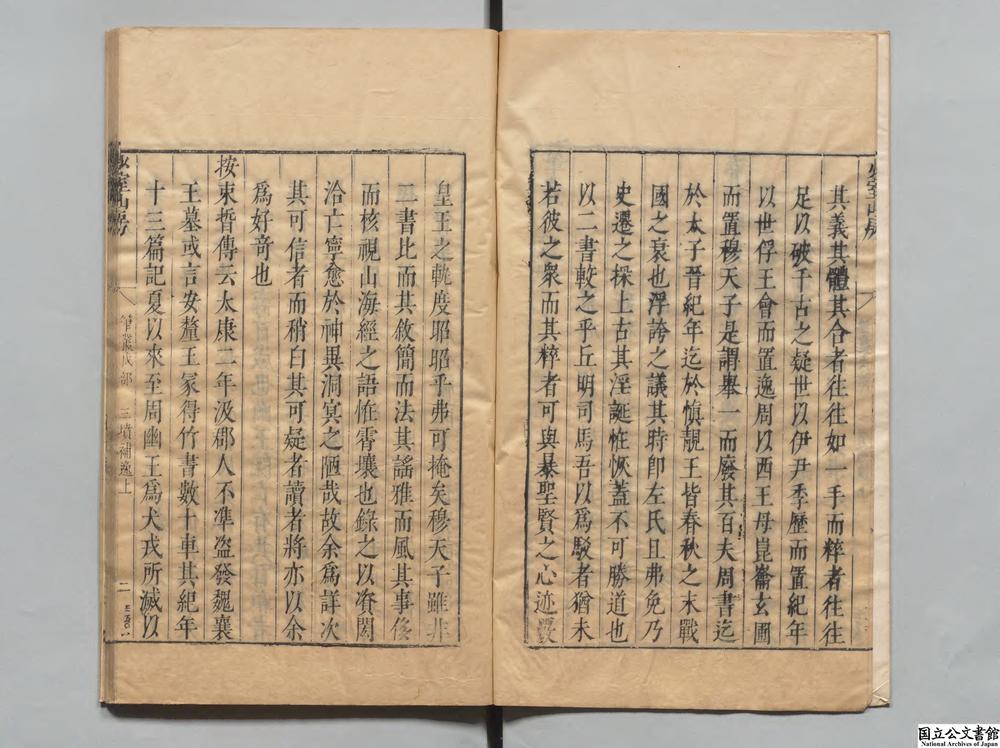 其義其體其合者往往如一手而粹者往往
足以破千古之疑世以伊尹季歷而置紀年
以世俘王會而置逸周以西王母崑崙玄圃
而置穆天子是謂舉一而廢其百夫周書迄
於太子晉紀年迄於慎靚王皆春秋之末戰
國之衰也浮誇之議其時即左氏且弗免乃
史遷之探上古其淫誕恠恢蓋不可勝道也
以二書較之乎丘明司馬吾以爲駁者猶未
若彼之衆而其粹者可與暴聖賢之心迹覈
皇王之軌度昭昭乎弗可掩矣穆天子雖非
二書比而其敘簡而法其謠雅而風其事侈
而核視山海經之語恠霄壤也錄之以資閎
洽亡寧愈於神異洞冥之陋哉故余爲詳次
其可信者而稍白其可疑者讀者將亦以余
爲好奇也
按束晳傳云太康二年汲郡人不凖盗發魏襄
王墓或言安釐王冢得竹書數十車其紀年
十三篇記夏以來至周幽王爲犬戎所滅以
少室山房
筆叢戊部
三墳補逸上
二
少室山房
国立公文書館
National Archives of Japan